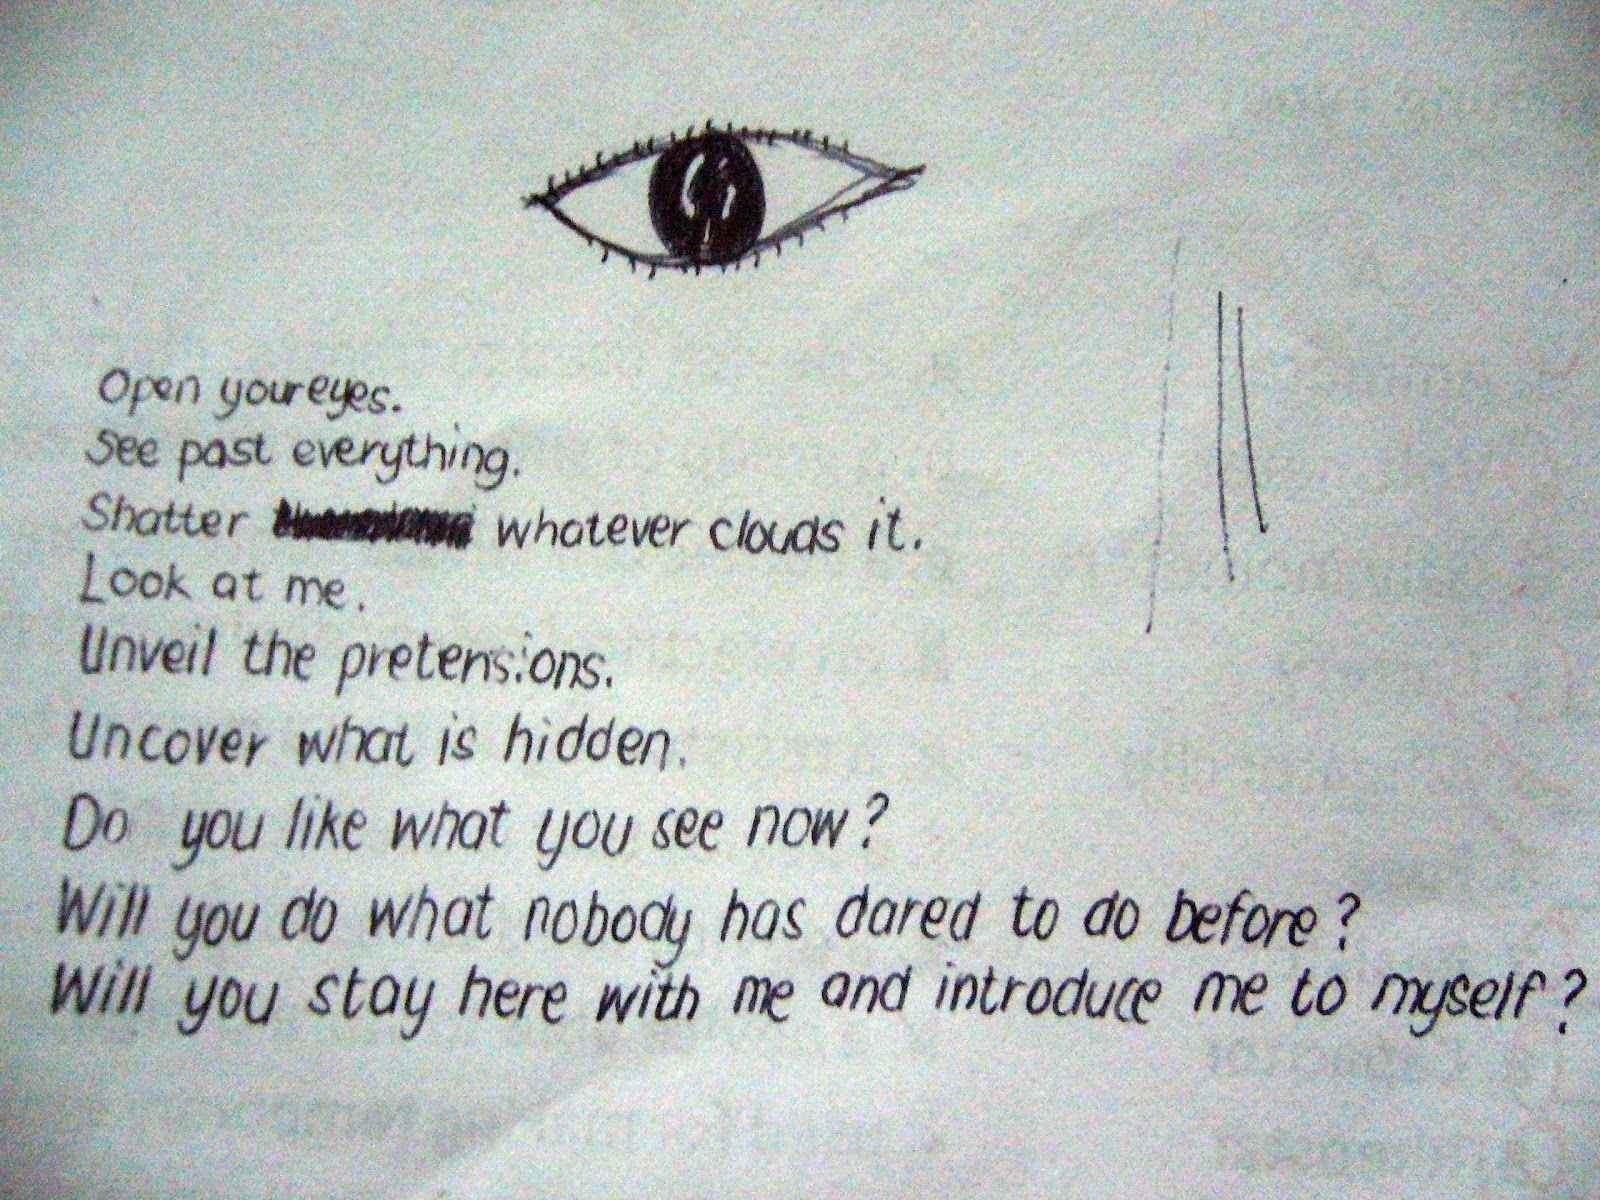 Open your eyes.
See past everything.
Shatter whatever clouds it.
Look at me.
Unveil the pretensions.
Uncover what is hidden.
Do you like what you see now?
Will you do what nobody has dared to do before?
Will you stay here with me and introduce me to myself?